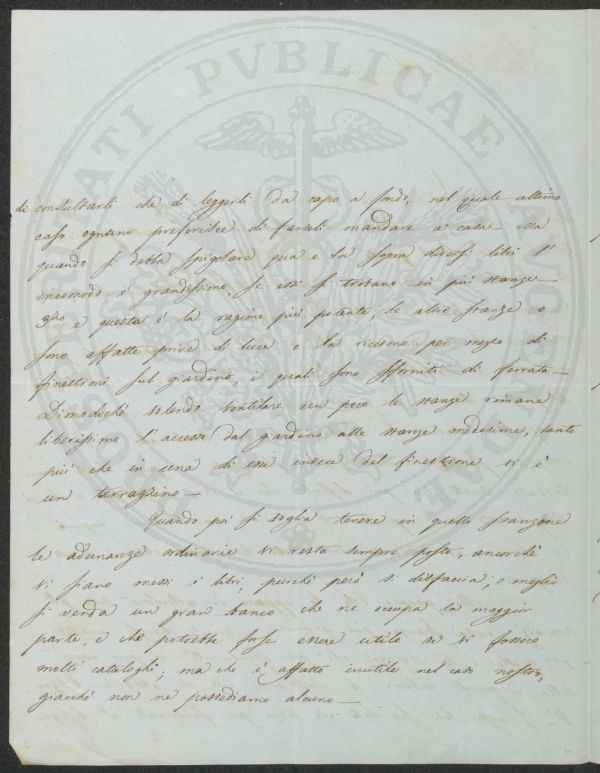 PROSPERITATI PVBLICAE AVGENDAE
di consultarli che di leggerli da capo a fondo, nel quale ultimo
caso ognuno preferisce di farseli mandare a casa — Ma
quando si debba spigolare qua e là sopra diversi libri l'
incomodo è grandissimo, se essi si trovano in più stanze —
e questa è la ragione più potente, le altre stanze o
sono affatto prive di luce o la ricevono per mezzo di
finestroni sul giardino, i quali sono sforniti di ferrata —
Dimodochè volendo ventilare un poco le stanze rimane
liberissimo l'accesso dal giardino alle stanze medesime, tanto
più che in una di esse invece del finestrone vi è
un terrazzino —
Quando poi si voglia tenere in quello stanzone
le adunanze ordinarie vi resta sempre posto, ancorchè
vi siano messi i libri, purchè però si disfaccia, o meglio
si venda un gran banco che ne occupa la maggior
parte, e che potrebbe forse essere utile se vi fossero
molti cataloghi, ma che è affatto inutile nel caso nostro,
giacchè non ne possediamo alcuno —